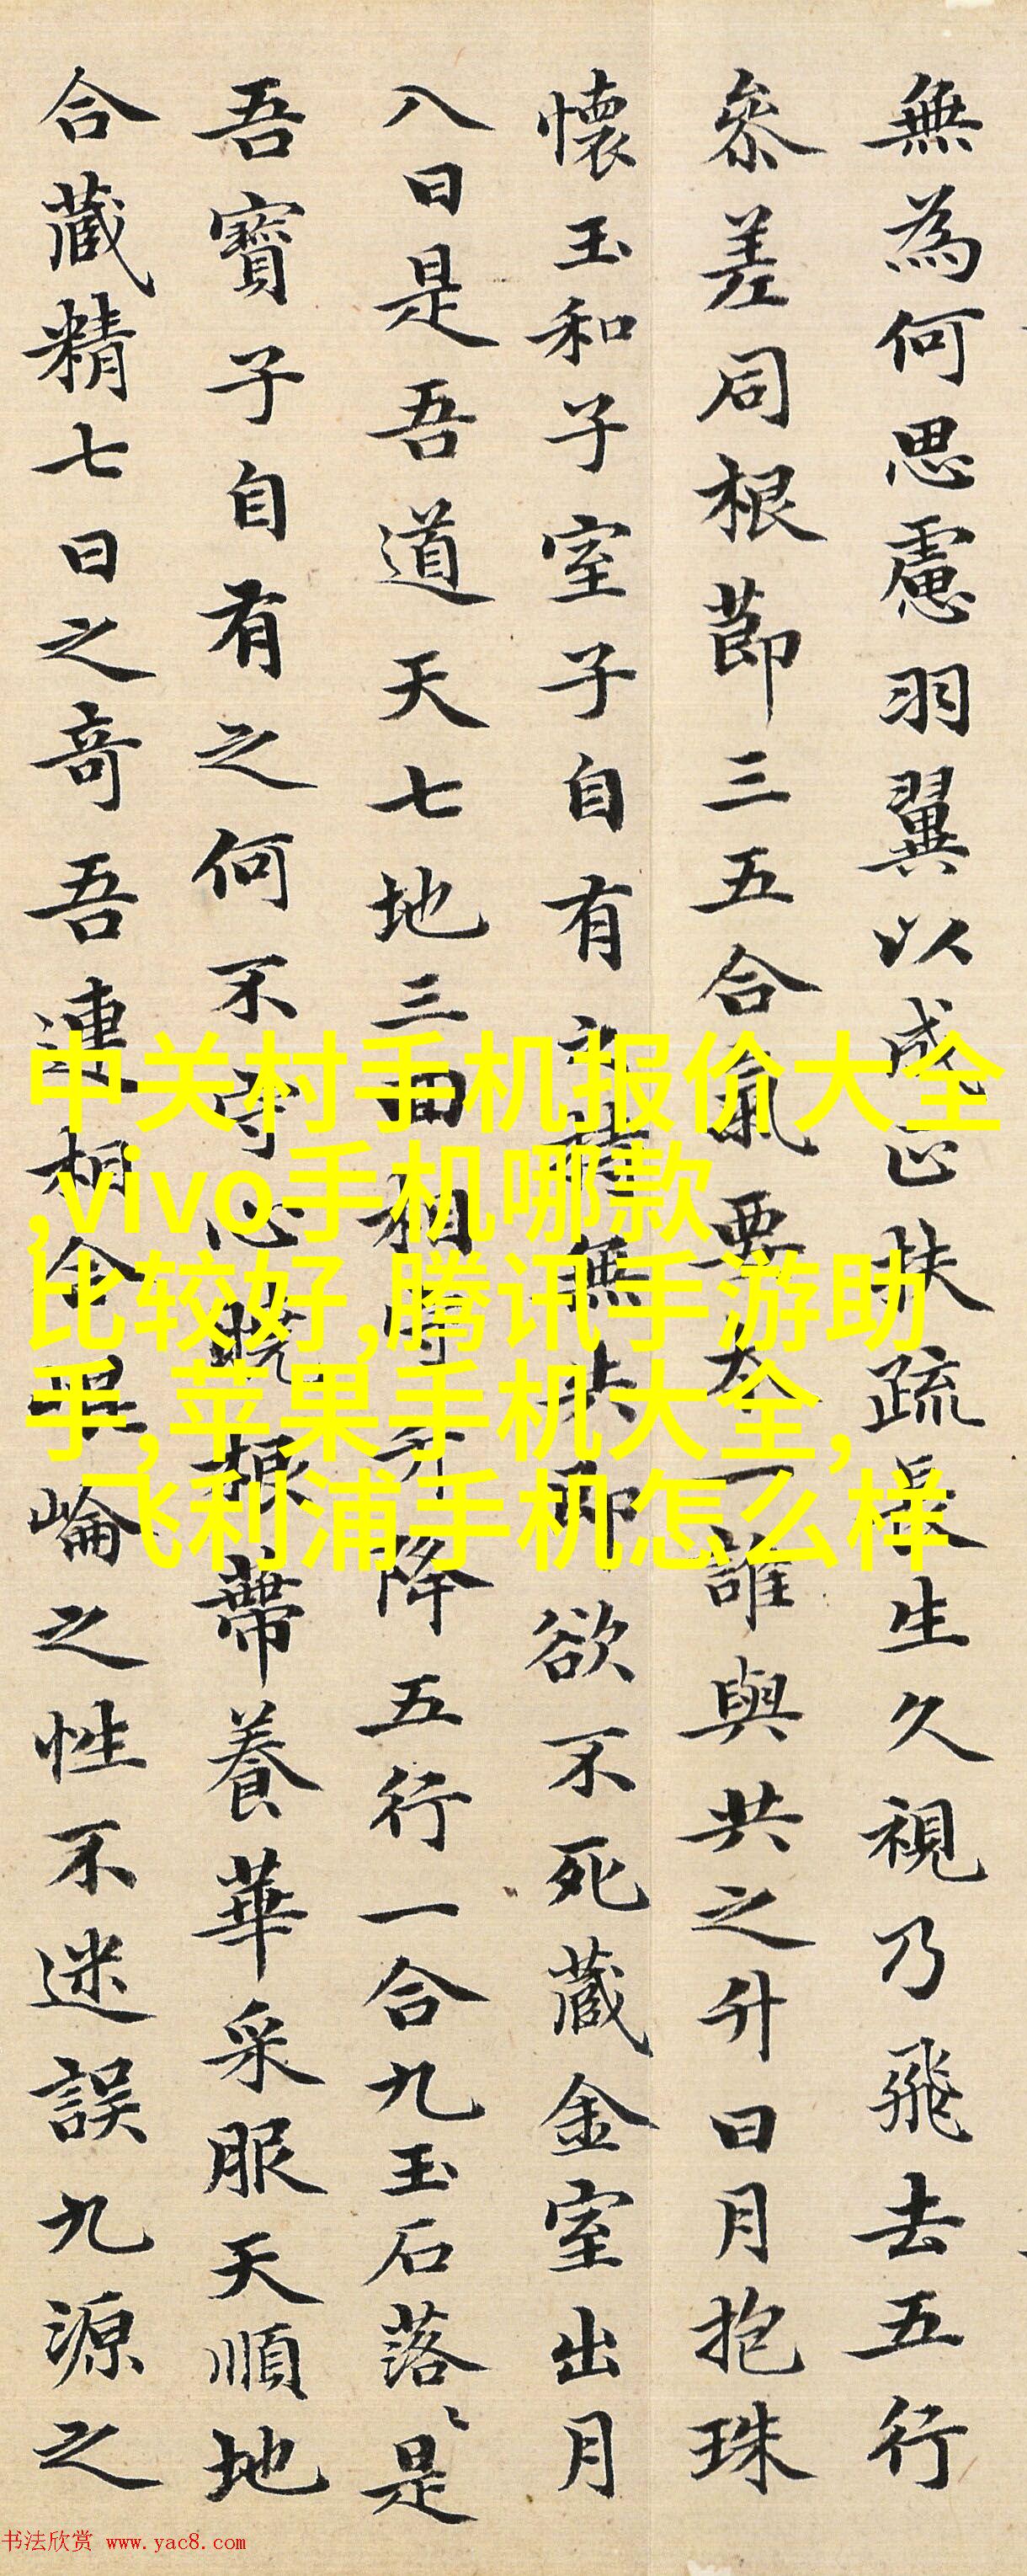 無為何思慮羽翼以成正扶疏長生久視乃飛去五行
參差同根莭三五合氣要本一誰與共之升日月抱珠
懷玉和子室子自有之持無失即欲不死藏金室出月
八日是吾道天七地三回相守升降五行一合九玉石落〻是
吾寶子自有之何不守心曉根蔕養華采服天順地
合藏精七日之奇吾連相合崐崘之性不迷誤九源之
中关村手机报价大全
,vivo手机哪款
比较好,腾讯手游助
手,苹果手机大全,
飞利浦手机怎么样
书法欣赏 www.yac8.com